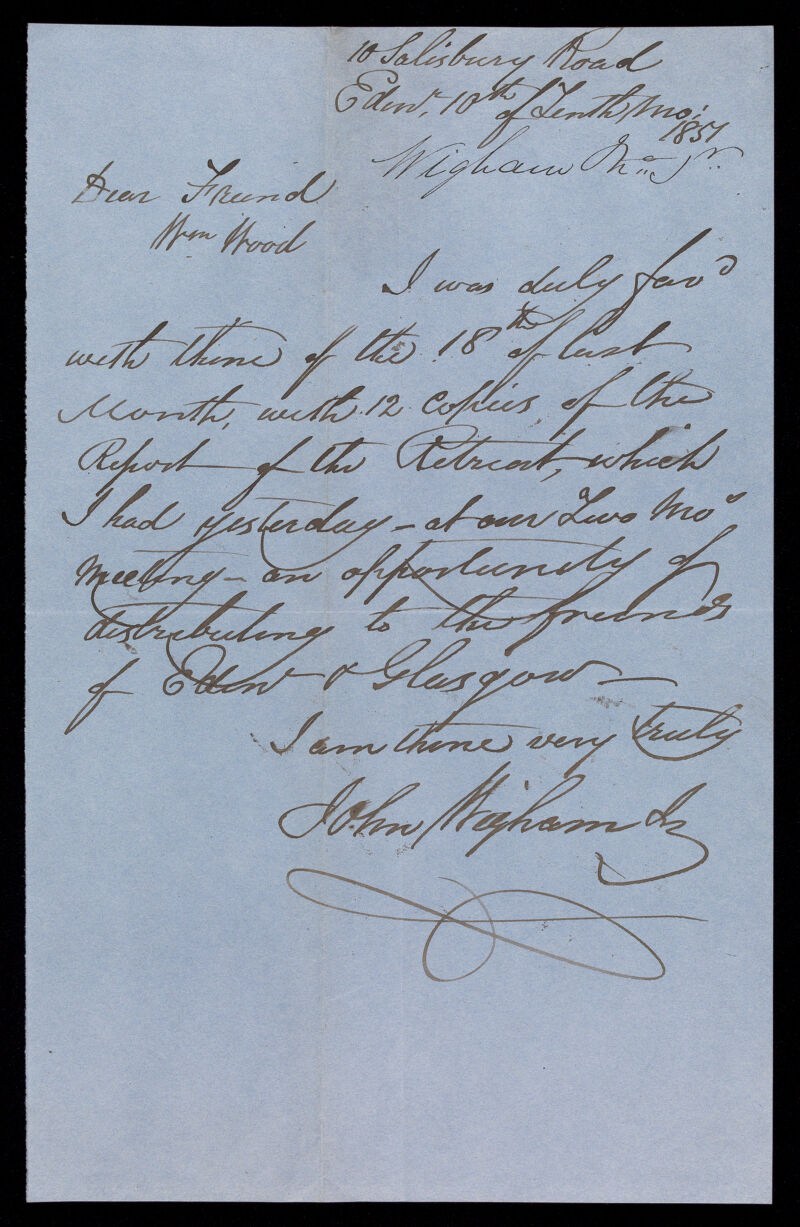 10 Salisbury Road
Edinr. 10th of Tenth Mo:
1851
Wigham Jno. Jr.
Dear Friend
Wm Wood
I was duly favd
with thine of the 18th of last
Month, with 12 copies of the
Report of the Retreat, which
I had yesterday - at our Two Mos
Meeting - an opportunity of
distributing to the friends
of Edinr & Glasgow —
I am thine very truly
John Wigham Jr